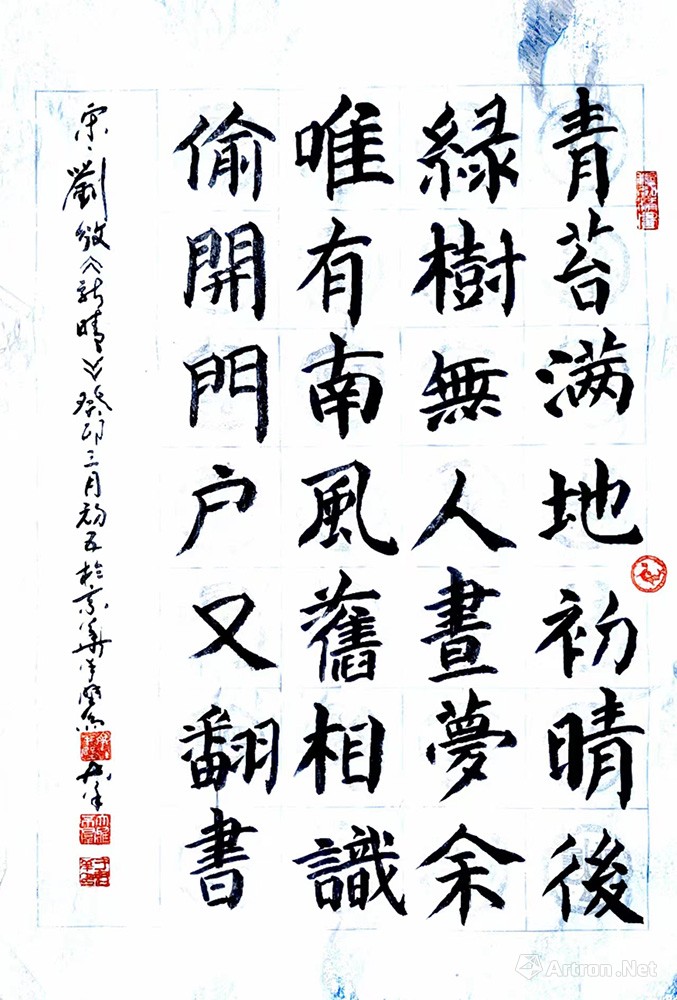 青苔满地初晴後
緑樹無人晝夢余
唯有南風舊相識
偷開門户又翻書
宋劉攽《新晴》癸卯三月初五於京華
Artron.Net